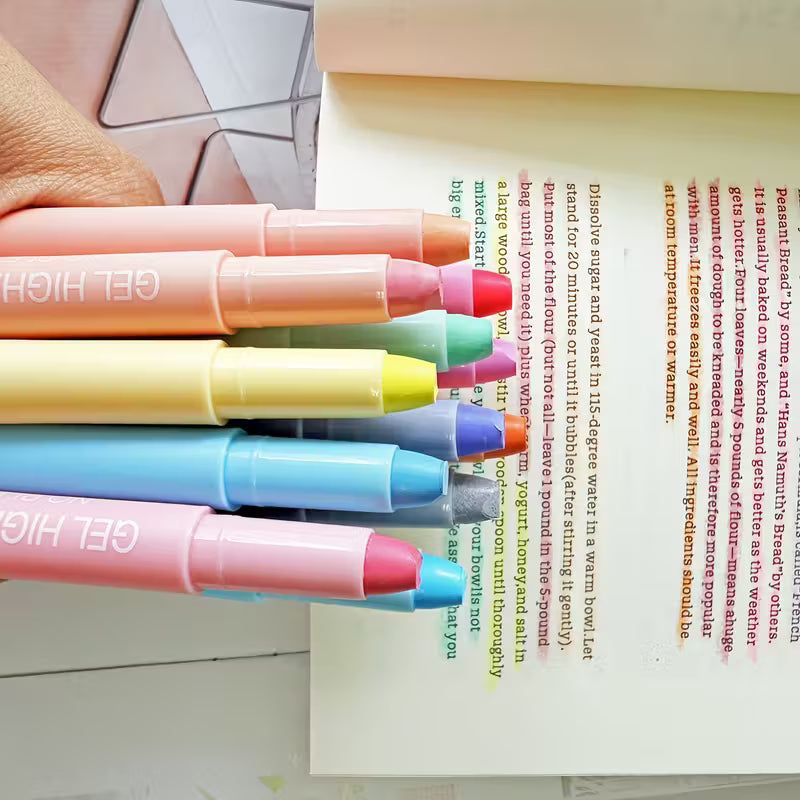 Peasant Bread" by some, and "Hans Namuth's Bread"by others.
It is usually baked on weekends and gets better as the weather
gets hotter.Four loaves—nearly 5 pounds of flour—means ahuge
amount of dough to be kneaded and is therefore more popular
with men.It freezes easily and well. All ingredients should be
at room temperature or warmer.
Dissolve sugar and yeast in 115-degree water in a warm bowl.Let
stand for 20 minutes or until it bubbles(after stirring it gently).
Put most of the flour (but not all—leave 1 pound in the 5-pound
bag until you need it) plus yogurt, honey,and salt in
a large wooden spoon until thoroughly
mixed.Start your bowlis not
big that you
GEL HIGH
GEL HIGH